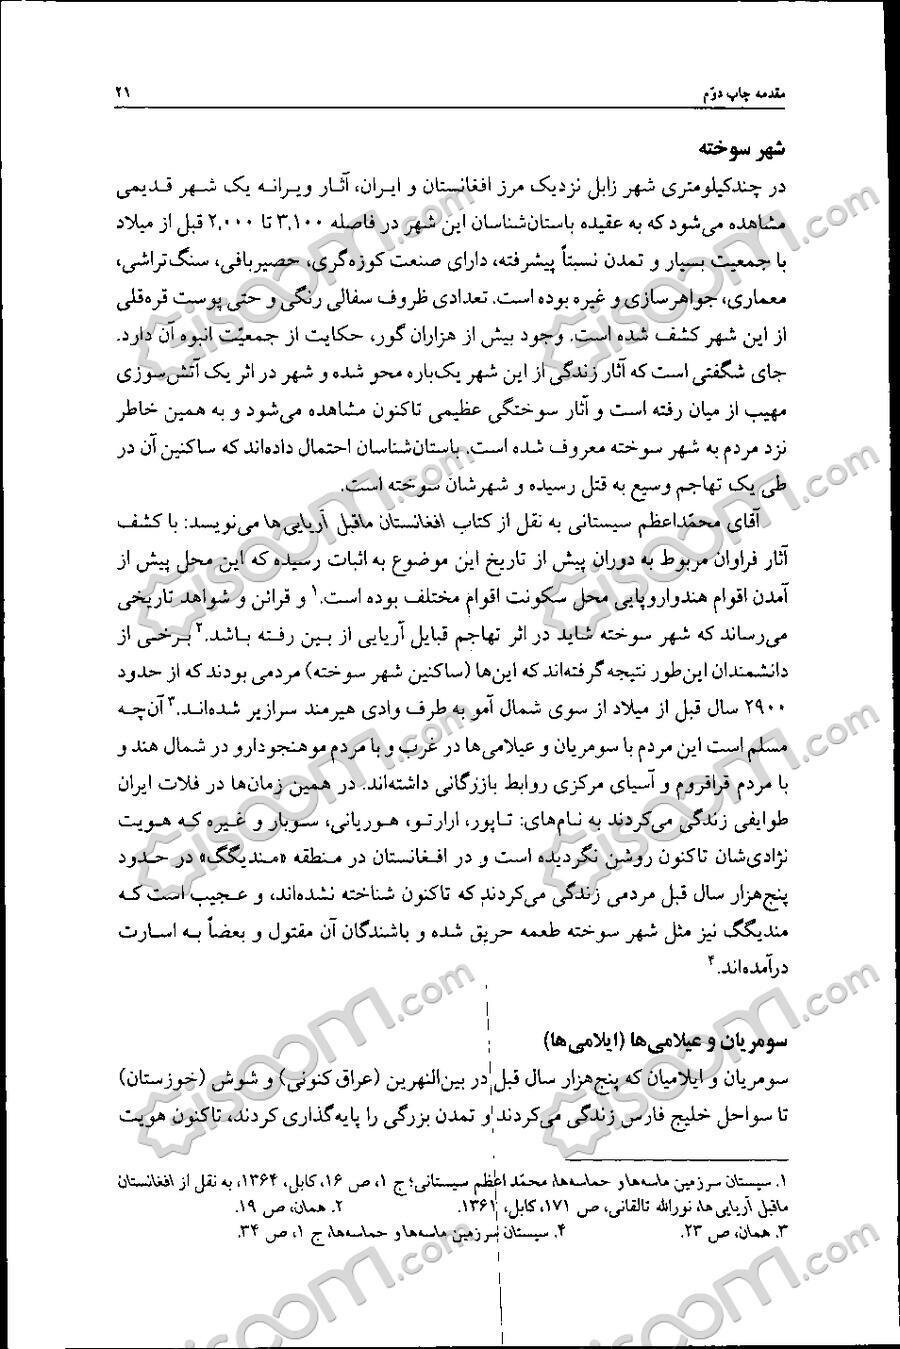 مقدمه چاپ دوّم ۲۱
شهر سوخته
در چندکیلومتری شهر زابل نزدیک مرز افغانستان و ایران، آثار ویرانه یک شهر قدیمی
مشاهده می‌شود که به عقیده باستان‌شناسان این شهر در فاصله ۳,۱۰۰ تا ۲,۰۰۰ قبل از میلاد
با جمعیت بسیار و تمدن نسبتاً پیشرفته، دارای صنعت کوزه‌گری، حصیربافی، سنگ‌تراشی،
معماری، جواهرسازی و غیره بوده است. تعدادی ظروف سفالی رنگی و حتی پوست قره‌قلی
از این شهر کشف شده است. وجود بیش از هزاران گور، حکایت از جمعیّت انبوه آن دارد.
جای شگفتی است که آثار زندگی از این شهر یک‌باره محو شده و شهر در اثر یک آتش‌سوزی
مهیب از میان رفته است و آثار سوختگی عظیمی تاکنون مشاهده می‌شود و به همین خاطر
نزد مردم به شهر سوخته معروف شده است. باستان‌شناسان احتمال داده‌اند که ساکنین آن در
طی یک تهاجم وسیع به قتل رسیده و شهرشان سوخته است.
آقای محمّداعظم سیستانی به نقل از کتاب افغانستان ماقبل آریایی‌ها می‌نویسد: با کشف
آثار فراوان مربوط به دوران پیش از تاریخ این موضوع به اثبات رسیده که این محل پیش از
آمدن اقوام هندواروپایی محل سکونت اقوام مختلف بوده است.۱ و قرائن و شواهد تاریخی
می‌رساند که شهر سوخته شاید در اثر تهاجم قبایل آریایی از بین رفته باشد.۲ برخی از
دانشمندان این‌طور نتیجه گرفته‌اند که این‌ها (ساکنین شهر سوخته) مردمی بودند که از حدود
۲۹۰۰ سال قبل از میلاد از سوی شمال آمو به طرف وادی هیرمند سرازیر شده‌اند.۳ آن‌چه
مسلم است این مردم با سومریان و عیلامی‌ها در غرب و با مردم موهنجودارو در شمال هند و
با مردم قراقروم و آسیای مرکزی روابط بازرگانی داشته‌اند. در همین زمان‌ها در فلات ایران
طوایفی زندگی می‌کردند به نام‌های: تاپور، ارارتو، هوریانی، سوبار و غیره که هویت
نژادی‌شان تاکنون روشن نگردیده است و در افغانستان در منطقه «مندیگک» در حدود
پنج‌هزار سال قبل مردمی زندگی می‌کردند که تاکنون شناخته نشده‌اند، و عجیب است که
مندیگک نیز مثل شهر سوخته طعمه حریق شده و باشندگان آن مقتول و بعضاً به اسارت
درآمده‌اند.۴
سومریان و عیلامی‌ها (ایلامی‌ها)
سومریان و ایلامیان که پنج‌هزار سال قبل در بین‌النهرین (عراق کنونی) و شوش (خوزستان)
تا سواحل خلیج فارس زندگی می‌کردند و تمدن بزرگی را پایه‌گذاری کردند، تاکنون هویت
۱. سیستان سرزمین ماسه‌ها و حماسه‌ها، محمّد اعظم سیستانی؛ ج ۱، ص ۱۶، کابل، ۱۳۶۴، به نقل از افغانستان
ماقبل آریایی‌ها، نورالله تالقانی، ص ۱۷۱، کابل، ۱۳۶۱. ۲. همان، ص ۱۹.
۳. همان، ص ۲۳. ۴. سیستان سرزمین ماسه‌ها و حماسه‌ها، ج ۱، ص ۳۴.
Gisoom.com